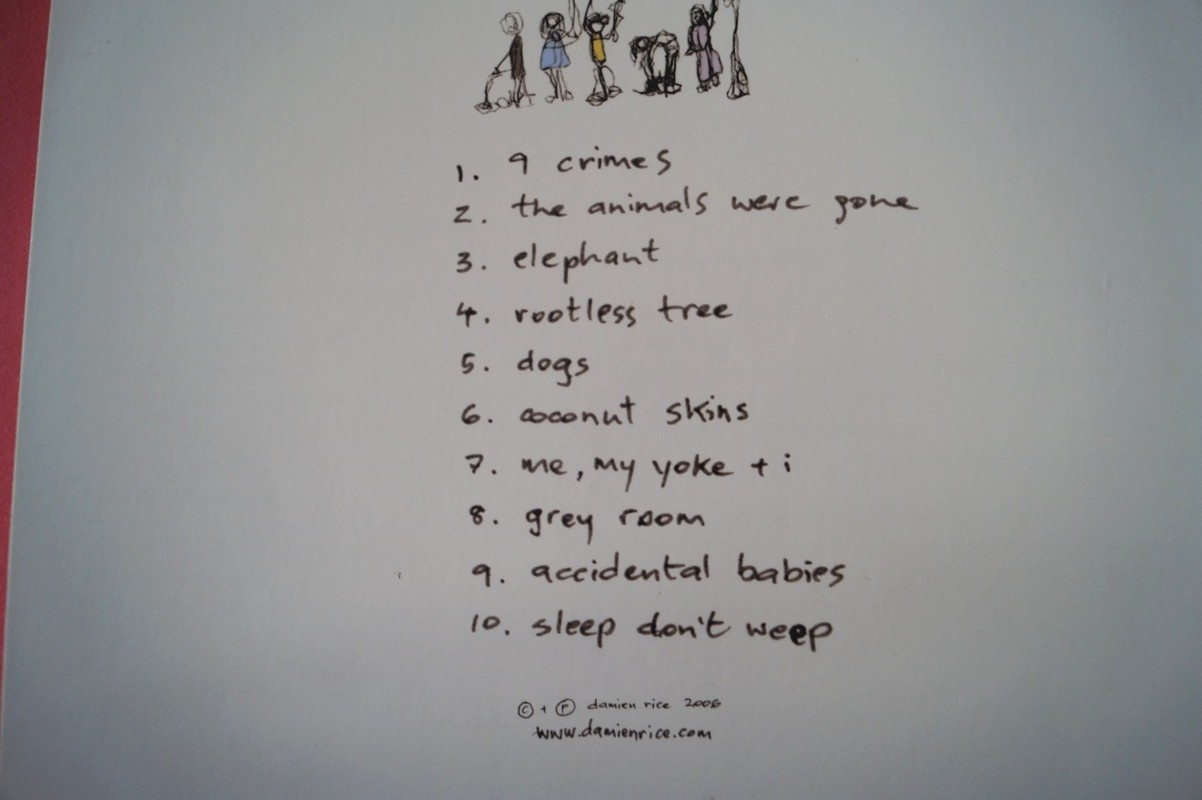 1. 9 crimes
2. the animals were gone
3. elephant
4. rootless tree
5. dogs
6. coconut skins
7. me, my yoke + i
8. grey room
9. accidental babies
10. sleep don't weep
© + ℗ damien rice 2006
www.damienrice.com